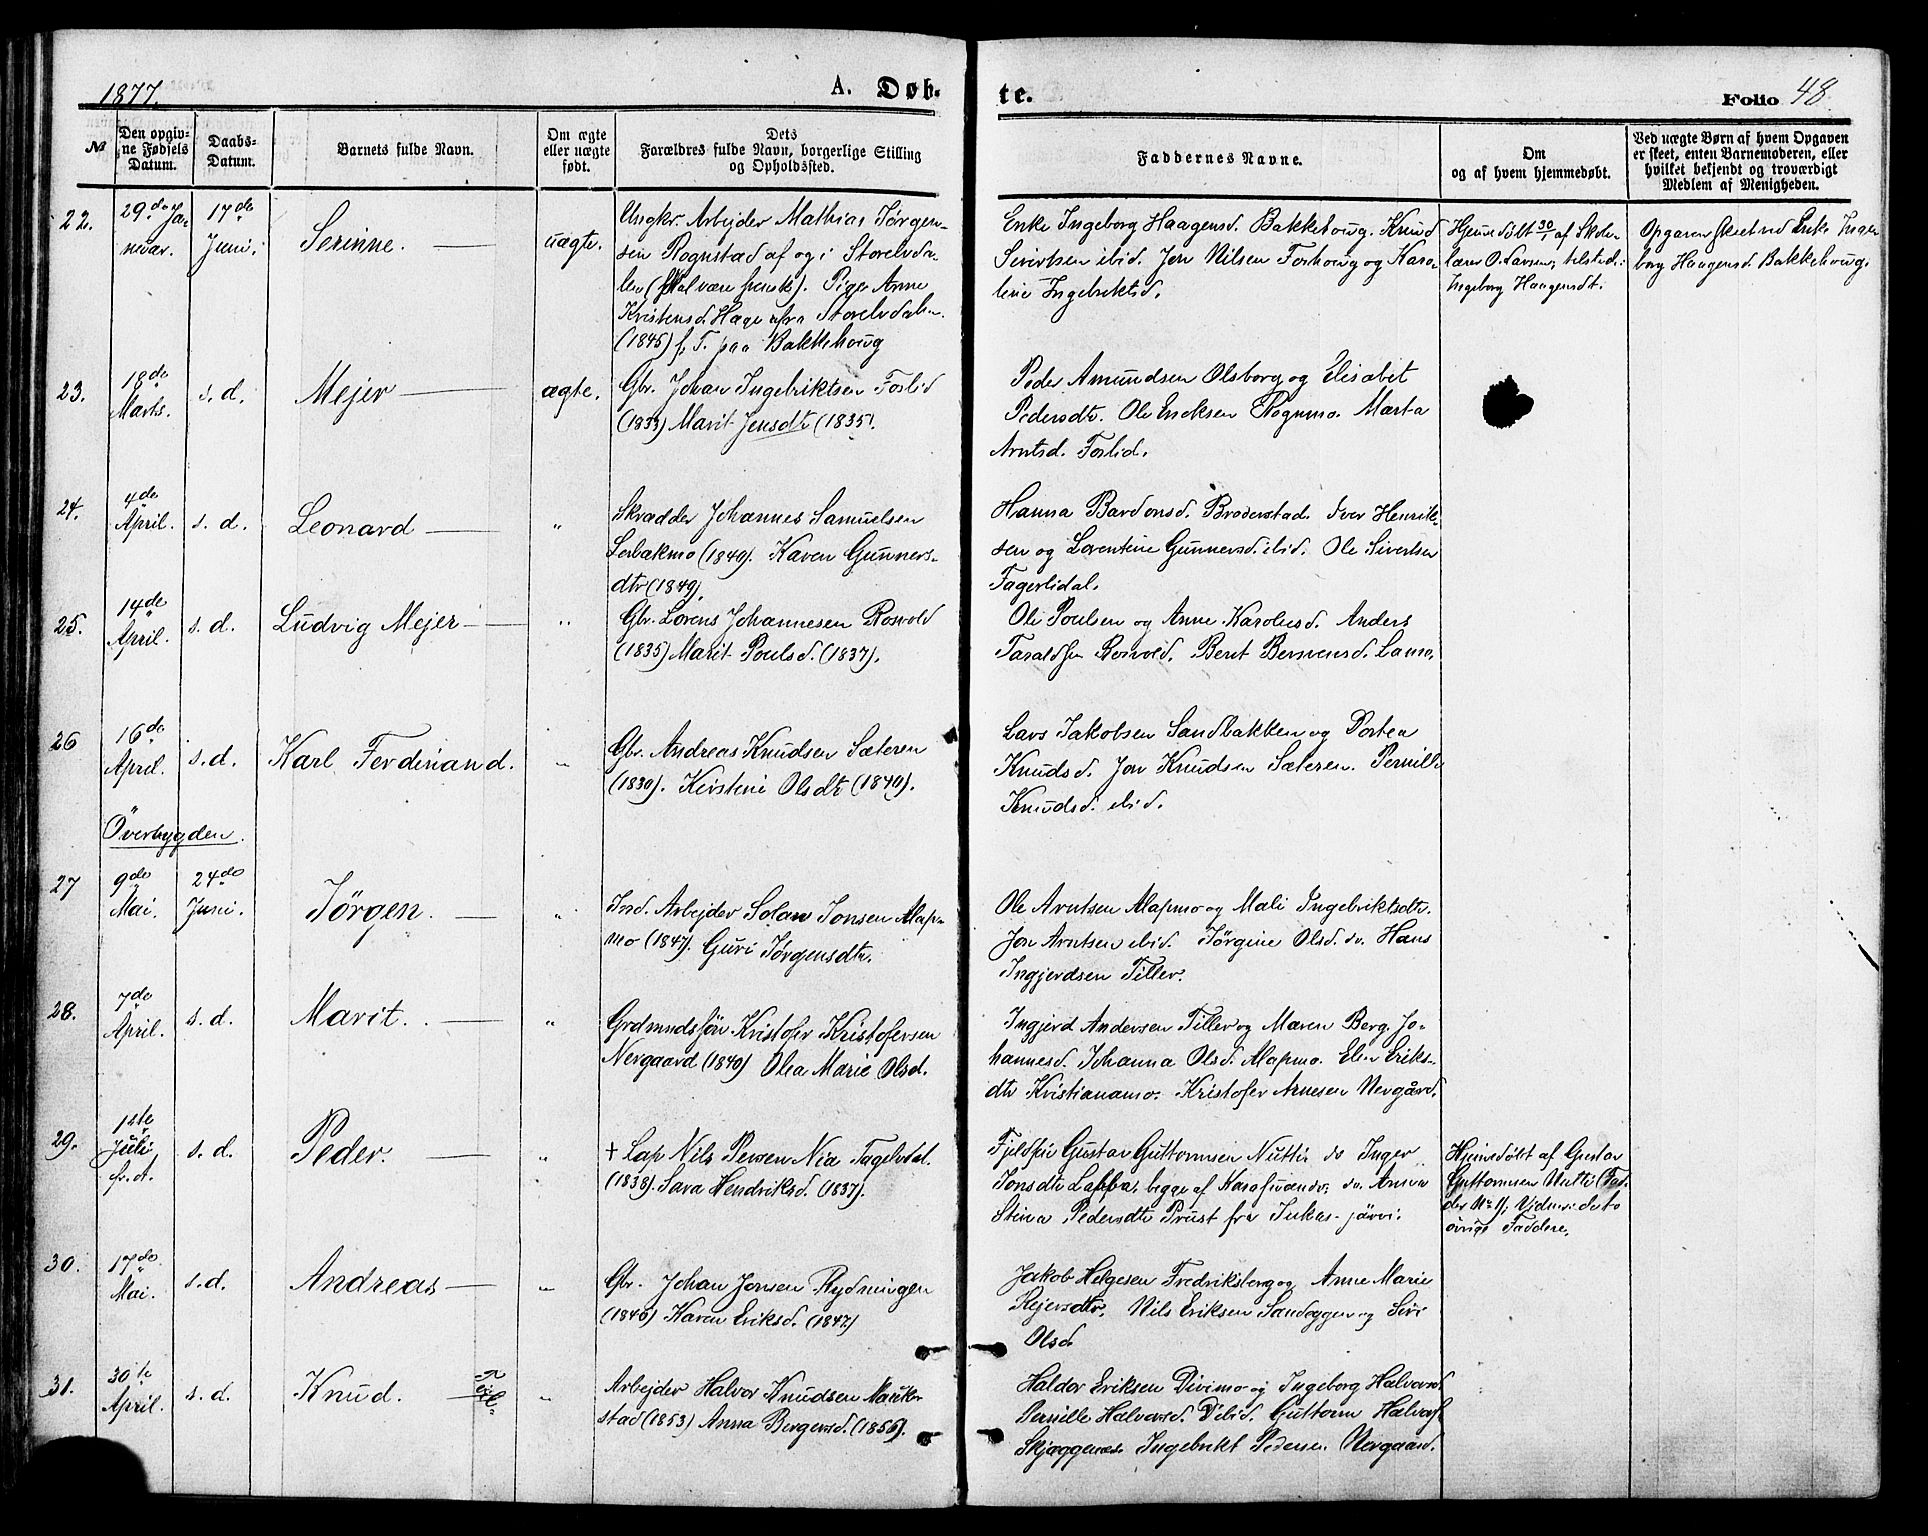 1877.
A. Døb-
te.
Folio 48.
№
Den opgiv-
ne Fødsels
Datum.
Daabs-
Datum.
Barnets fulde Navn.
Om ægte
eller uægte
født.
Dets
Forældres fulde Navn, borgerlige Stilling
og Opholdssted.
Faddernes Navne.
Om
og af hvem hjemmedøbt.
Ved uægte Børn af hvem Opgaven
er skeet, enten Barnemoderen, eller
hvilket bekjendt og troværdigt
Medlem af Menigheden.
22.
29de Ja-
nuar.
17de
Juni.
Serinne.
uægte.
Ungkr. Arbejder Mathias Jørgen-
sen Rognstad af og i Storelvda-
len (skal være svensk). Pige Anne
Kristensd. Hage fra Storelvdalen.
(1845) f. T. paa Bakkehoug
Enke Ingeborg Haagensd. Bakkehoug. Knud
Sivertsen ibid. Jon Nilsen Foshoug og Karo-
line Ingebriktsd.
Hjemmedøbt 30/1 af Skole-
lærer O. Larsen; tilsted.:
Ingeborg Haagensdt.
Opgaven skeet ved Enke Inge-
borg Haagensd. Bakkehoug.
23.
18de
Marts.
s. d.
Mejer
ægte.
Gbr. Johan Ingebriktsen Foslid
(1833) Marit Jensdtr (1835).
Peder Amundsen Olsborg og Elisabet
Pedersdtr. Ole Ericksen Rognmo. Marta
Arntsd. Foslid.
24.
4de
April.
s. d.
Leonard
"
Skrædder Johannes Samuelsen
(1849). Karen Gunners-
dtr (1849).
Hanna Bardonsd. Broderstad. Iver Henrik-
sen og Lorentine Gunnersd. ibid. Ole Sivertsen
Fagerlidal.
25.
14de
April.
s. d.
Ludvig Mejer
"
Gbr. Lorens Johannesen Rosvold
(1835) Marit Poulsd. (1837).
Ole Poulsen og Anne Karolusd. Anders
Taraldsen Rosvold. Berit Bersvensd. Lamo.
26
16de
April.
s. d.
Karl Ferdinand.
"
Gbr. Andreas Knudsen Sæteren
(1830). Kirstine Olsdtr (1840).
Lars Jakobsen Sandbakken og Dortea
Knudsd. Jon Knudsen Sæteren. Pernille
Knudsd. ibid.
Överbygden.
27
9de
Mai.
24de
Juni.
Jørgen.
"
Ind. Arbejder Jonsen Alap-
mo (1847). Guri Jørgensdtr.
Ole Arntsen Alapmo og Mali Ingebriktsdtr.
Jon Arntsen ibid. Jørgine Olsd. do. Hans
Ingjerdsen Tiller.
28.
7de
April.
s. d.
Marit.
"
Grdmndssön Kristofer Kristofersen
Nergaard (1840) Olea Marie Olsd.
Ingjerd Andersen Tiller og Maren Berg. Jo-
hannesd. Johanna Olsd. Alapmo. Elen Eriks-
dtr Kristianamo. Kristofer Arnesen Nergård.
29.
1ste
Juli
fr. A.
s. d.
Peder.
"
+ Lap Nils Persen Nia Tagelvdal.
(1838). Sara Hendriksd. (1837).
Fjeldfin Gustav Guttormsen Nutti. do Inger
Jonsdtr Lappa, begge af Karasuando; do. Anna
Stina Pedersdtr Prust fra Jukas-järvi.
Hjemmedøbt af Gustav
Guttormsen Nutti (Fad-
der No 1); Vidner: de to
övrige Faddere.
30.
17de
Mai.
s. d.
Andreas
"
Gbr. Johan Jonsen Rydningen
(1846) Karen Eriksd. (1847)
Jakob Helgesen Fredriksberg og Anne Marie
Rejersdtr. Nils Eriksen Sandeggen og Siri
Olsd.
31.
30te
April.
s. d.
Knud.
"
Arbejder Halvor Knudsen Nauke-
stad (1853) Anna Bergersd. (1856).
Haldor Eriksen Divimo og Ingeborg Halvorsd.
Pernille Halvorsd. ibid. Guttorm Halvors.
Skjæggenæs. Ingebrikt Pedersen Nergaard.